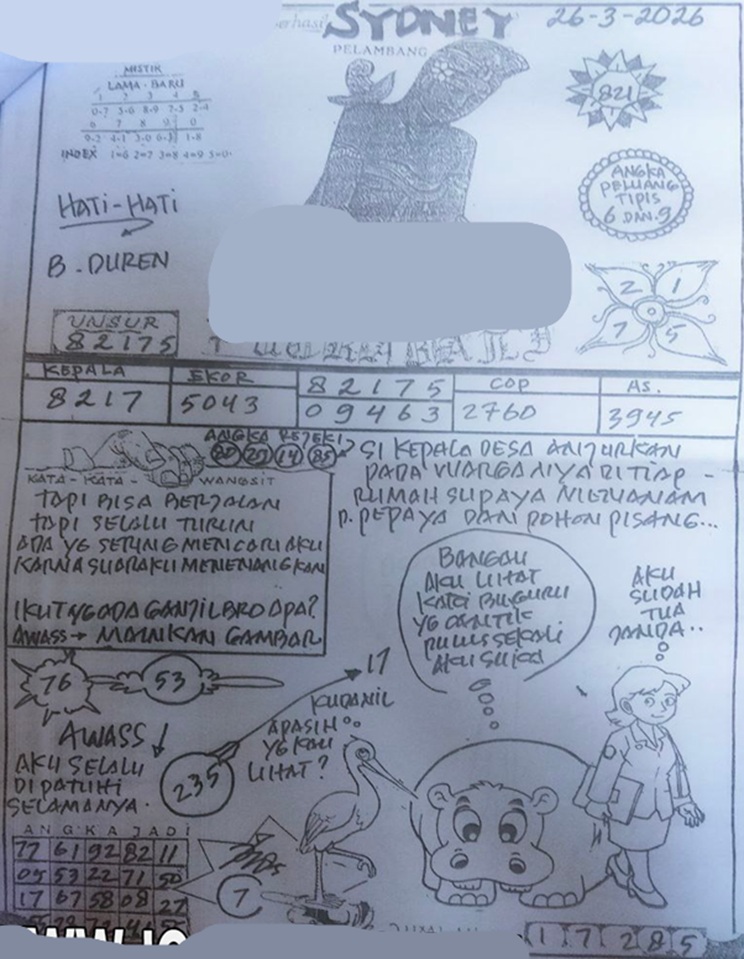 SYDNEY 26-3-2026
PELAMBANG
MISTIK
LAMA - BARU
1 2 3 4 5
0-7 5-6 8-9 7-3 2-4
6 7 8 9 0
9-2 4-1 3-0 6-8 1-8
INDEX 1=6 2=7 3=8 4=9 5=0
821
ANGKA
PELUANG
TIPIS
6 DAN 9
HATI-HATI
B. DUREN
2 1
7 5
UNSUR
82175
KEPALA EKOR 82175 COP AS.
8217 5043 09463 2760 3945
ANGKA REJEKI
20 14 85
KATA - KATA - WANGSIT
TAPI BISA BERJALAN
TAPI SELALU TURUN
ADA YG SERING MENCARI AKU
KARNA SUARAKU MENENANGKAN
IKUT YG ADA GANJIL BRO APA?
AWASS → MAINKAN GAMBAR
SI KEPALA DESA ANJURKAN
PADA WARGANYA DI TIAP -
RUMAH SUPAYA MENANAM
P. PEPAYA DAN POHON PISANG...
BANGAU
AKU LIHAT
KATA BU GURU
YG CANTIK
MULUS SEKALI
AKU SUKA
AKU
SUDAH
TUA
JANDA..
76 53
17
KUDANIL
APASIH
YG KAU
LIHAT?
AWASS
AKU SELALU
DIPATUHI
SELAMANYA.
235
ANGKA JADI
77 61 92 82 11
05 53 22 71 50
17 67 58 08 27
7
1 7 2 8 5